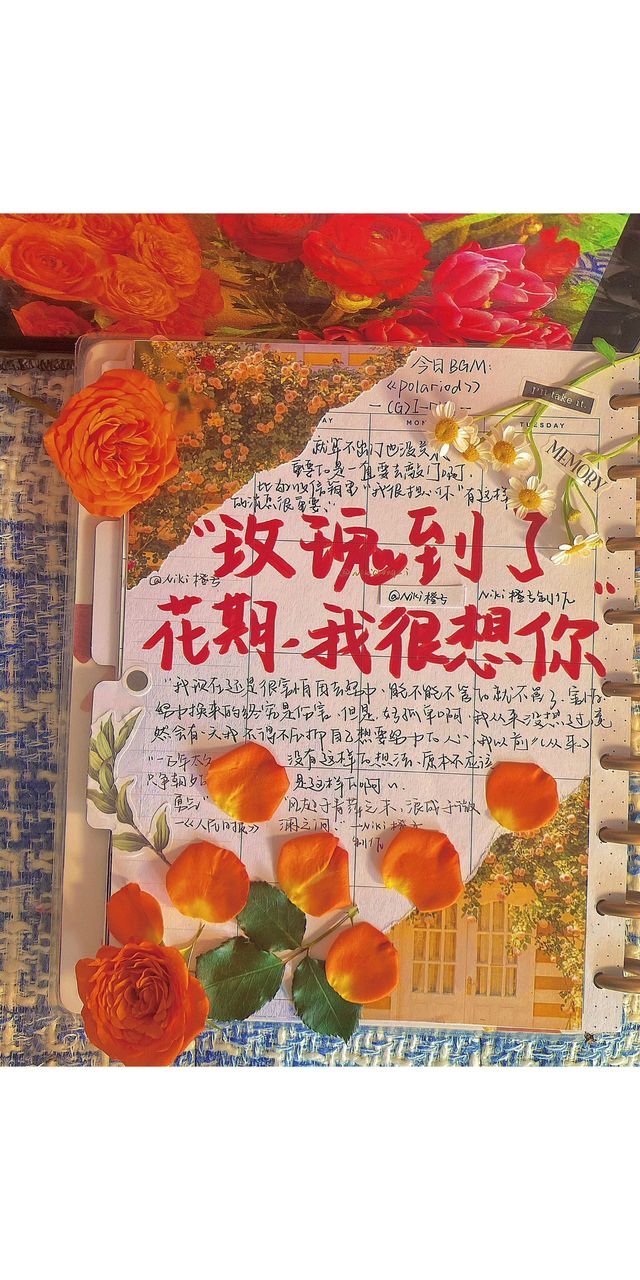 今日BGM:
《polariod》
-(G)I-
I'll take it.
MON
TUESDAY
MEMORY
就算不出门也没关
重要的是一直要去敲门啊.
比如收信箱里"我很想你"有这样
的消息很重要.
"玫瑰到了
@Niki橙方
@Niki橙方 Niki橙方制作
花期.我很想你"
"我现在还是很害怕自我给中,能不能不害怕就不善了,
给中换来的经常是伤害,但是.好孤单啊.我从来没想过竟
然会有一天我不得不压抑自己想要给中的心,我以前(从来)
没有这样的想法.原本不应该
是这样的啊.
只争朝夕
—《人民日报》
"风起于青萍之末,浪成于微
澜之间.—Niki橙方
制作